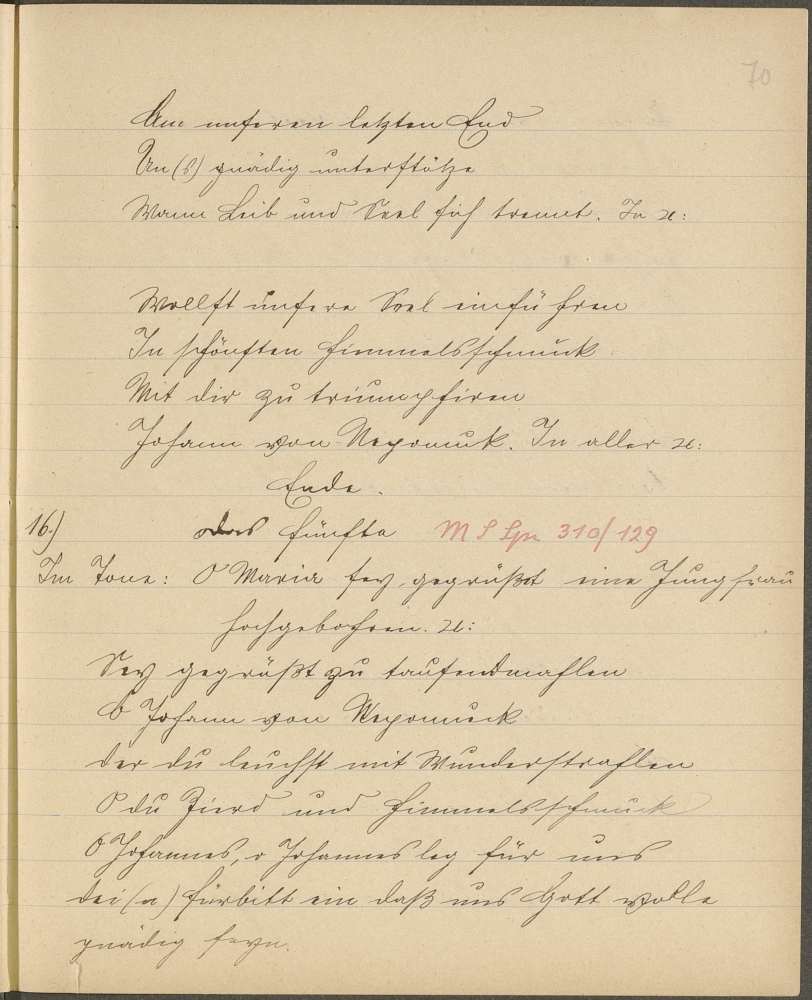 70
Am unseren letzten End
Un(s) gnädig unterstütze
Wann Leib und Seel sich trennt. In ꝛc:
Wollst unsere Seel einführen
In schönsten Himmelsschmuck
Mit dir zu triumphiren
Johann von Nepomuk. In aller ꝛc:
Ende.
16.) das fünfte M S Lpr 310/129
Im Tone: O Maria sey gegrüßt eine Jungfrau
hochgebohren. ꝛc:
Sey gegrüßt zu tausendmahlen
O Johann von Nepomuck
der du leuchst mit Wunderstrahlen
O du Zierd und Himmelsschmuck
O Johannes, o Johannes leg für uns
dei(n) Fürbitt ein daß uns Gott wolle
gnädig seyn.